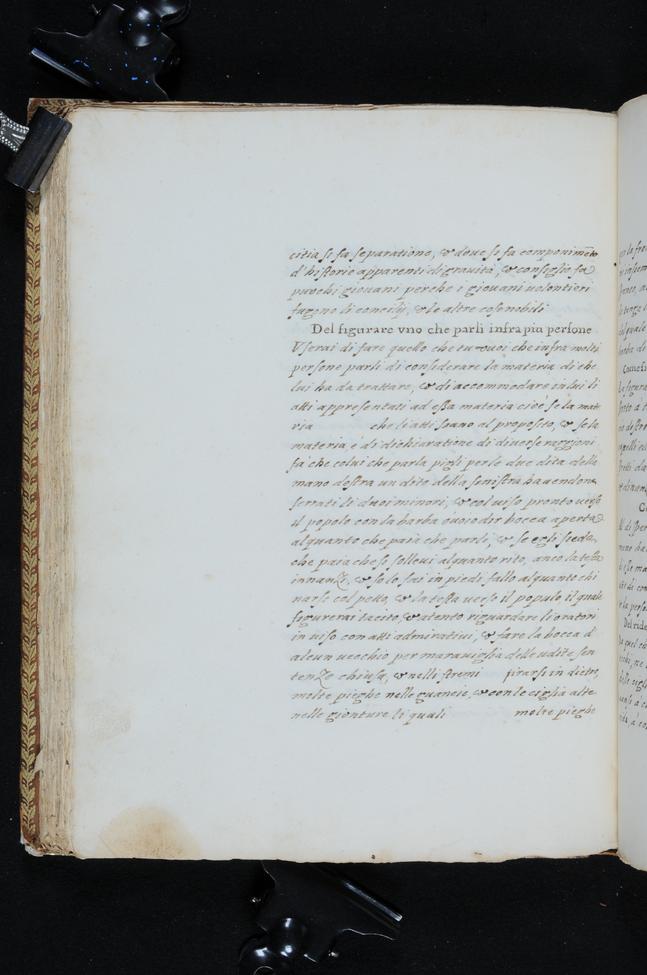 citia si fa separatione, & doue si fa componimẽto
d'historie apparenti di grauità, & consiglio fa
puochi giouani perche i giouani uolontieri
fugono li concilij, & le altre cose nobili
Del figurare vno che parli infra piu persone
Vserai di fare quello che tu vuoi che infra molti
persone parli di considerare la materia di che
lui ha da trattare, & di accommodare in lui li
atti appresentati ad essa materia cioè se la mate
ria che li atti siano al proposito, & se la
materia è di dichiaratione di diuerse raggioni
fa che colui che parla pigli per le due dita della
mano destra un dito della sinistra hauendone
serrati li duoi minori, & col uiso pronto uerso
il popolo con la bocca aperta
alquanto che paia che parli, & se egli sieda,
che paia che si solleui alquanto rito, anco la testa
innanzi, & se lo fai in piedi fallo alquanto chi
narsi col petto, & la testa uerso il populo il quale
figurerai tacito, & atento riguardare l'oratori
in uiso con atti admiratiui, & fare la bocca d'
alcun uecchio per marauiglia delle udite sen
tenze chiusa, & nelli stremi tirarsi in dietro
molte pieghe nelle guancie, & con le ciglia alte
nelle gionture li quali molte pieghe